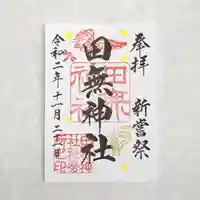 奉拝
新嘗祭
田無神社
令和二年十一月二十三日